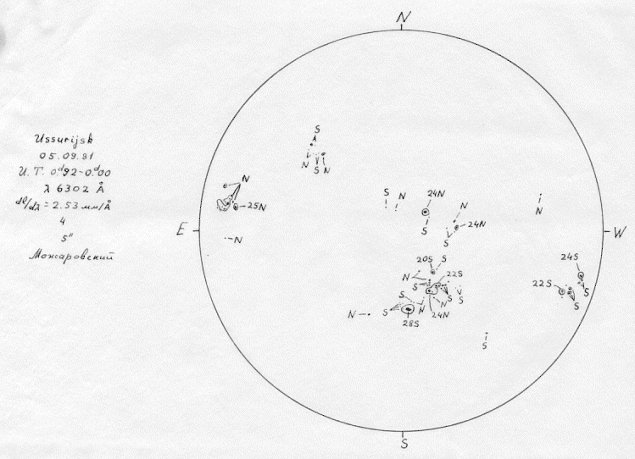 N
Ussurijsk
05.09.81
U.T. 0ᵈ92-0ᵈ00
λ 6302 Å
dl/dλ = 2.53 мм/Å
4
5"
Можаровский
S
N S N
N
25N
E
N
S N 24N
S
N
24N
S
N
W
20S S
N
S
22S
S
S
N N
S
24N
S
28S
N
24S
S
22S
S
S
S